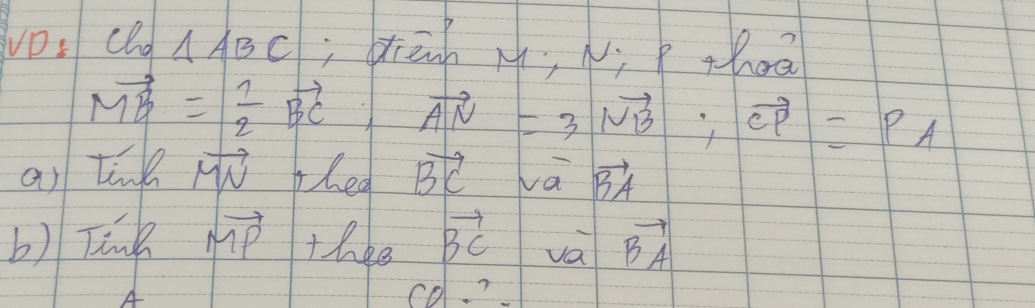 VD: Cho Δ ABC ; điểm M ; N ; P thoả
$\overrightarrow{MB} = \frac{1}{2} \overrightarrow{BC}$ ; $\overrightarrow{AN} = 3 \overrightarrow{NB}$ ; $\overrightarrow{CP} = PA$
a) Tính $\overrightarrow{MN}$ theo $\overrightarrow{BC}$ và $\overrightarrow{BA}$
b) Tính $\overrightarrow{MP}$ theo $\overrightarrow{BC}$ và $\overrightarrow{BA}$
A